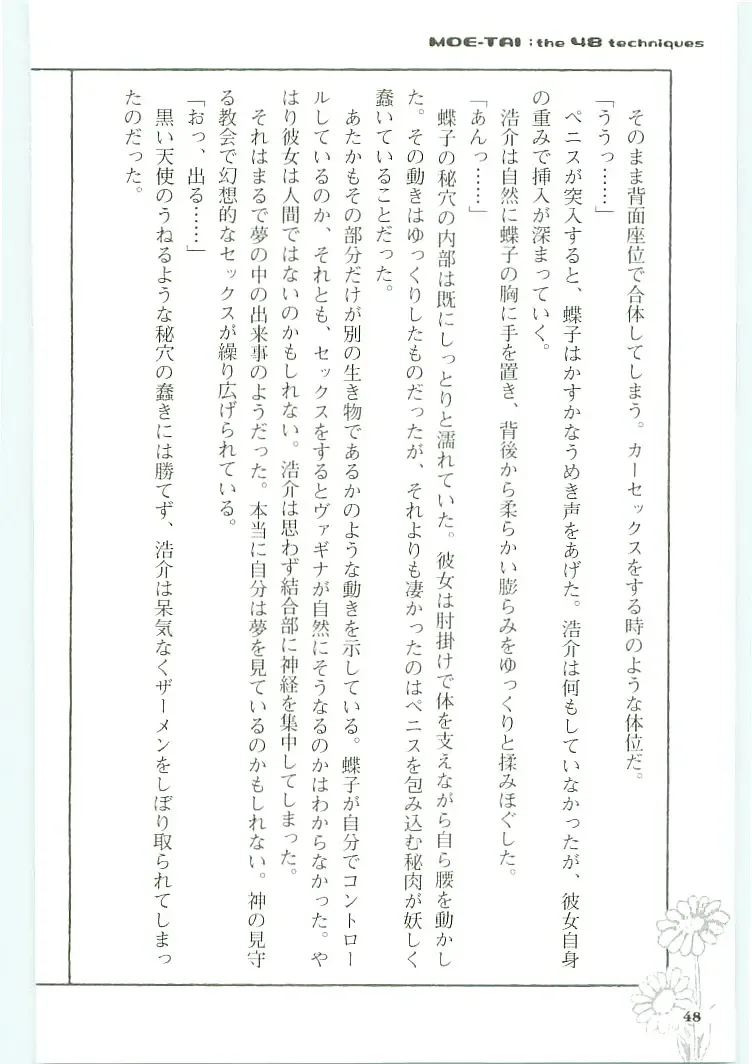 MOE-TAI ; the 48 techniques
そのまま背面座位で合体してしまう。カーセックスをする時のような体位だ。
「ううっ……」
ペニスが突入すると、蝶子はかすかなうめき声をあげた。浩介は何もしていなかったが、彼女自身
の重みで挿入が深まっていく。
浩介は自然に蝶子の胸に手を置き、背後から柔らかい膨らみをゆっくりと揉みほぐした。
「あんっ……」
蝶子の秘穴の内部は既にしっとりと濡れていた。彼女は肘掛けで体を支えながら自ら腰を動かし
た。その動きはゆっくりしたものだったが、それよりも凄かったのはペニスを包み込む秘肉が妖しく
蠢いていることだった。
あたかもその部分だけが別の生き物であるかのような動きを示している。蝶子が自分でコントロー
ルしているのか、それとも、セックスをするとヴァギナが自然にそうなるのかはわからなかった。や
はり彼女は人間ではないのかもしれない。浩介は思わず結合部に神経を集中してしまった。
それはまるで夢の中の出来事のようだった。本当に自分は夢を見ているのかもしれない。神の見守
る教会で幻想的なセックスが繰り広げられている。
「おっ、出る……」
黒い天使のうねるような秘穴の蠢きには勝てず、浩介は呆気なくザーメンをしぼり取られてしまっ
たのだった。
48